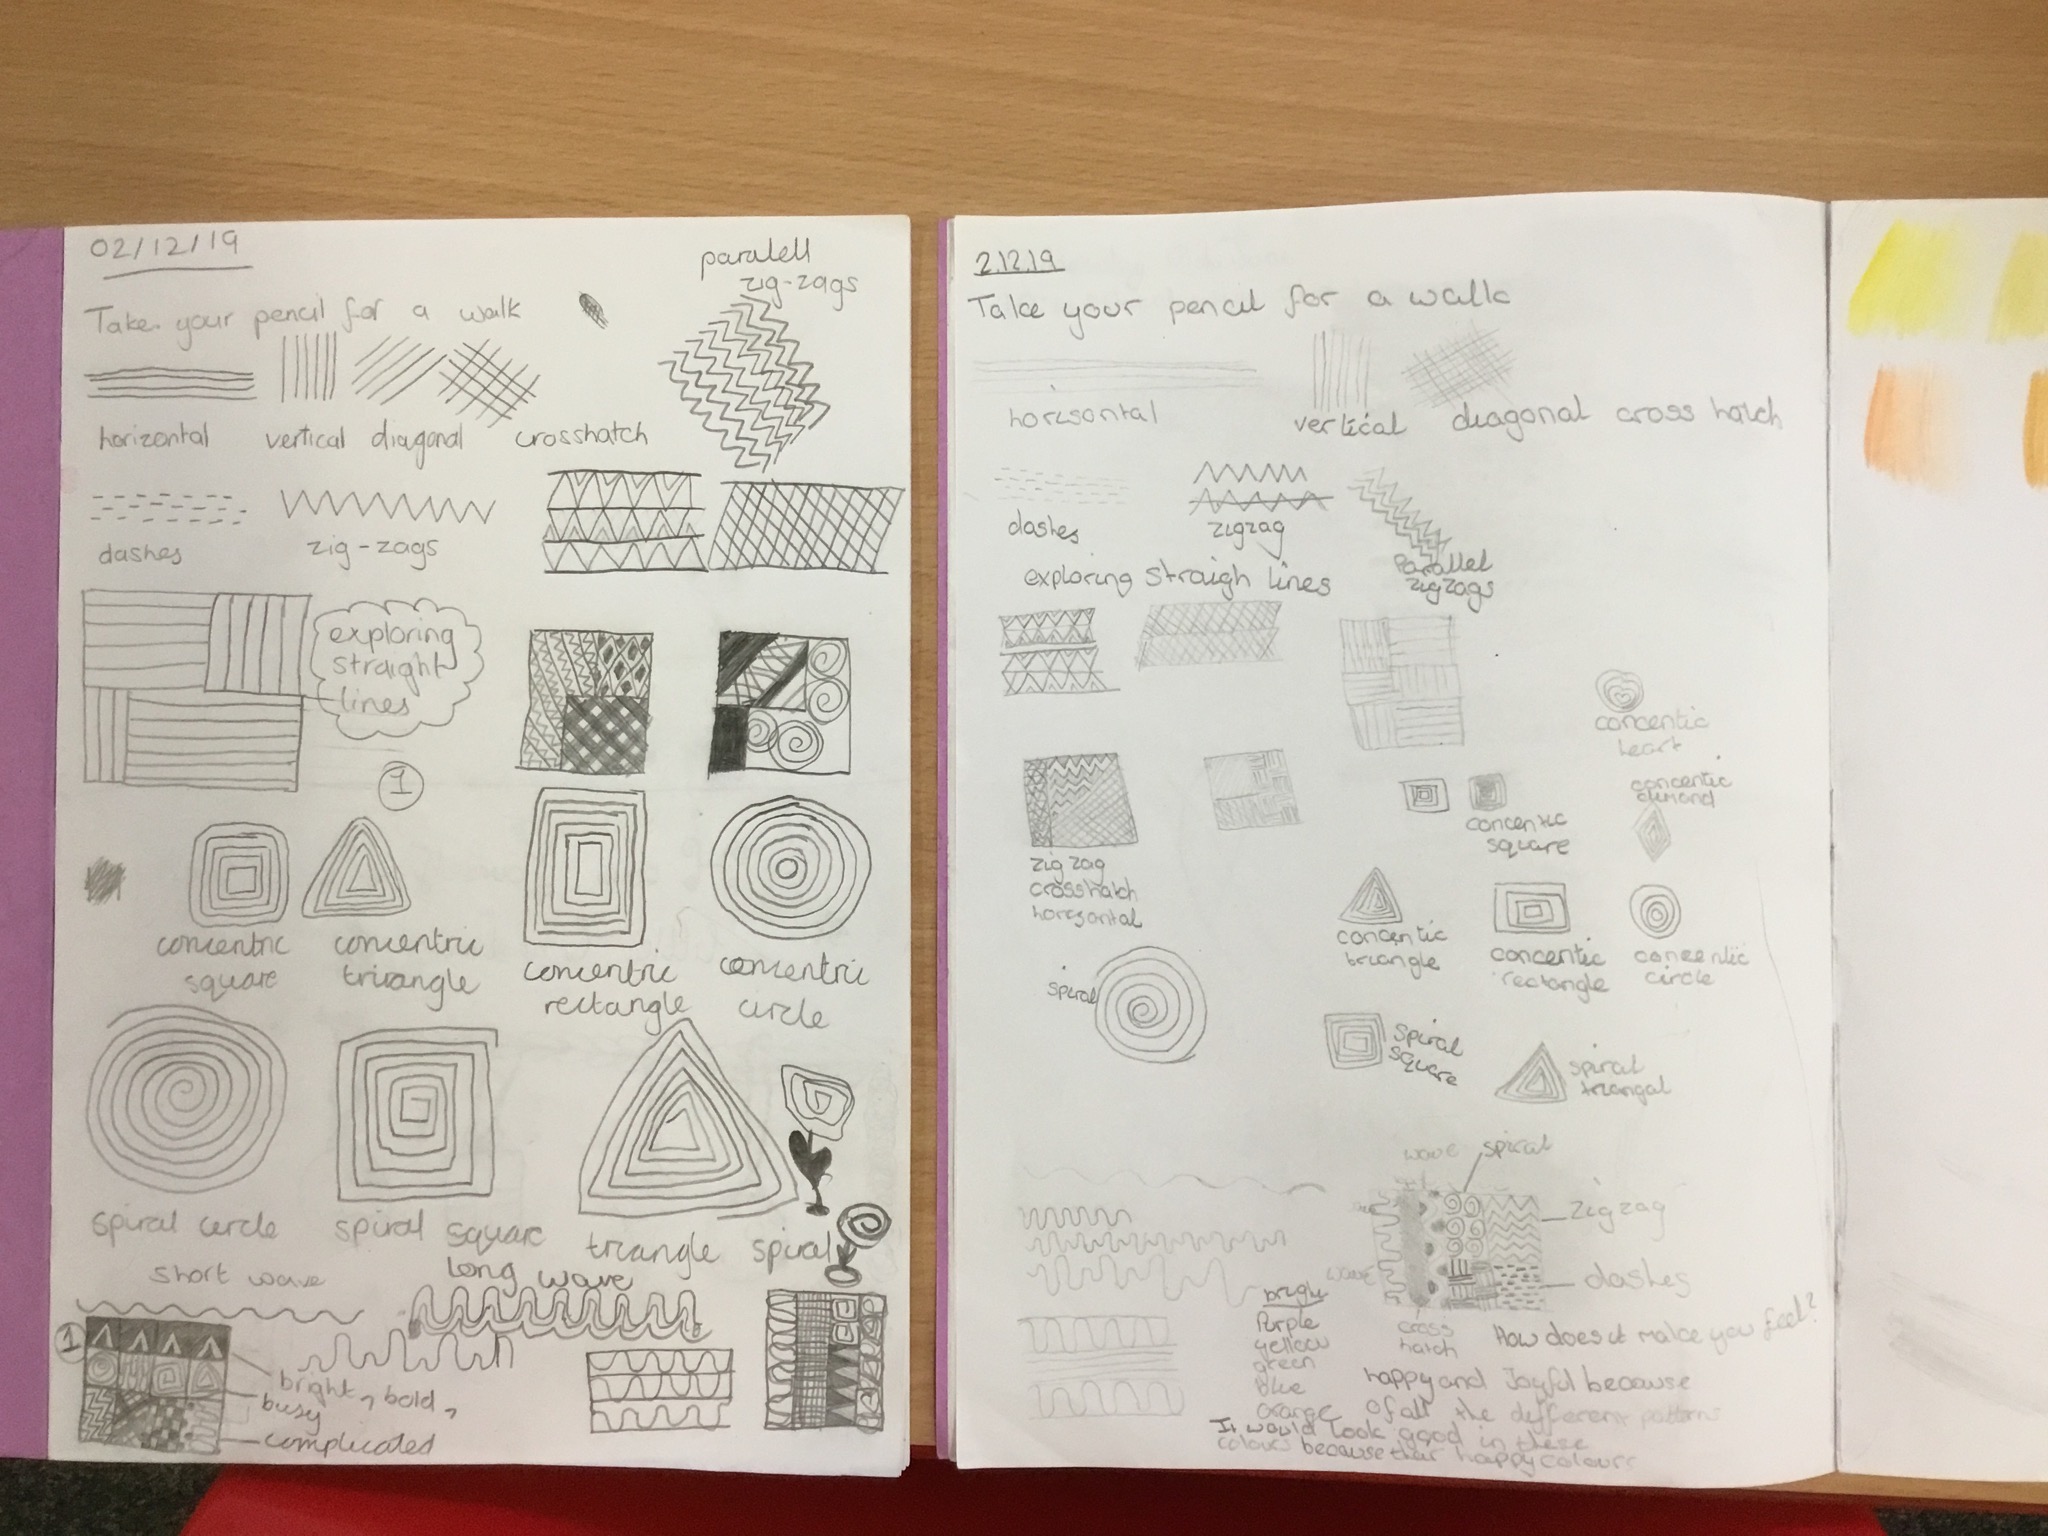 02/12/19
paralell
zig-zags
Take your pencil for a walk
horizontal vertical diagonal crosshatch
dashes zig-zags
exploring
straight
lines
1
concentric
square
concentric
triangle
concentric
rectangle
concentric
circle
spiral circle spiral square triangle spiral
short wave long wave
1
bright, bold,
busy
complicated
2.12.19
Take your pencil for a walk
horisontal vertical diagonal cross hatch
dashes zigzag
Parallel
zigzags
exploring straigh lines
concentic
heart
concentic
square
zig zag
crosshatch
horesontal
concentic
triangle
concentic
rectangle
concentic
circle
spiral
spiral
square
spiral
triangal
wave spiral
zigzag
dashes
cross
hatch
bright
Purple
yellow
green
blue
orange
How does it make you feel?
happy and Joyful because
of all the different patterns
It would look good in these
colours because their happy colours